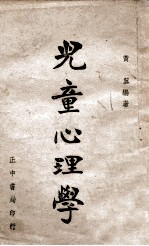 黃翼編著
兒童心理學
正中書局印行